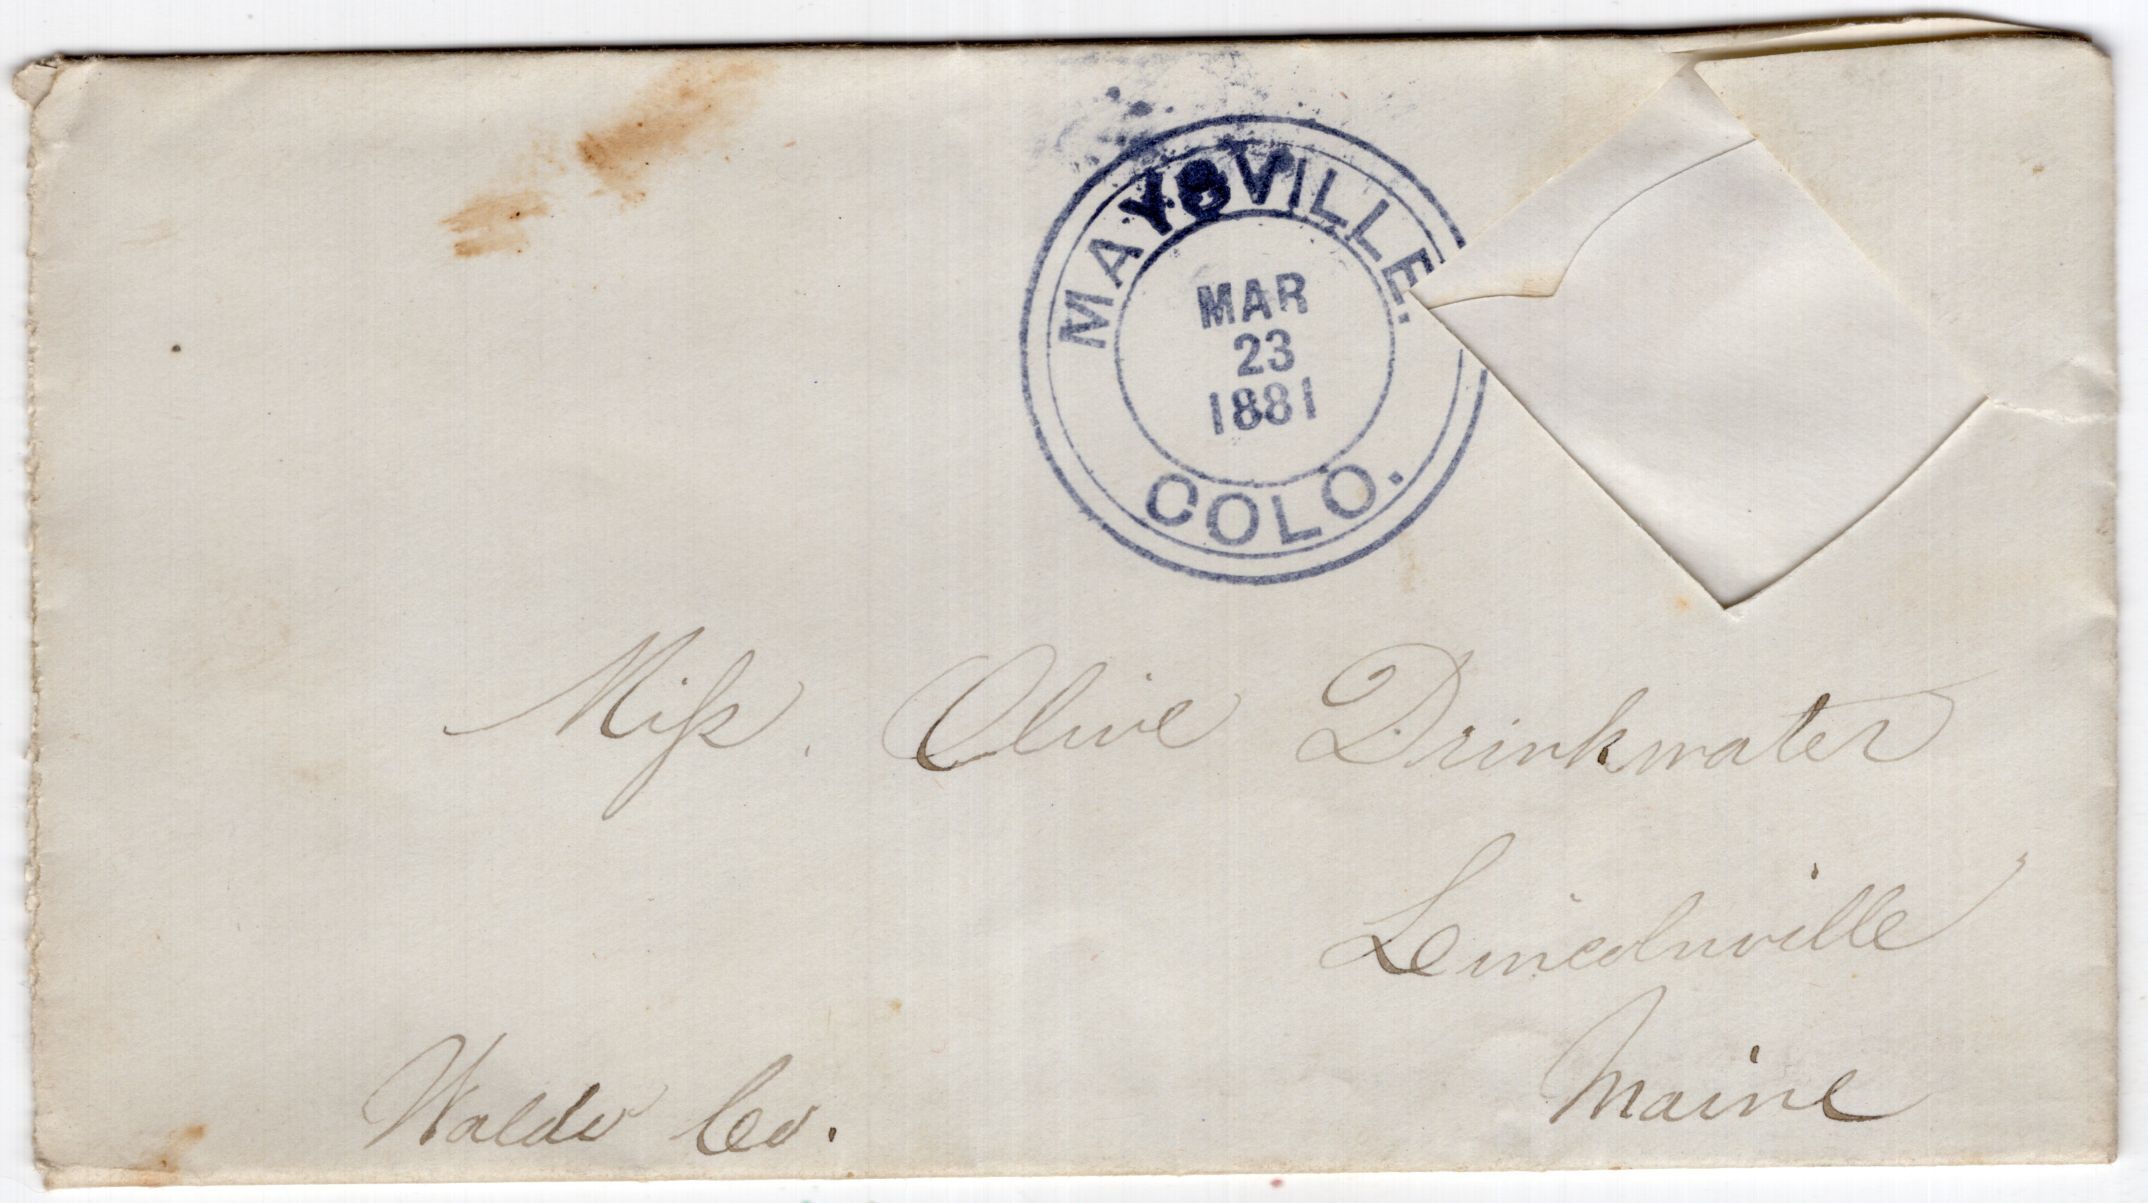 MAYSVILLE.
MAR
23
1881
COLO.
Miſs. Olive Drinkwater
Lincolnville
Maine
Waldo Co.